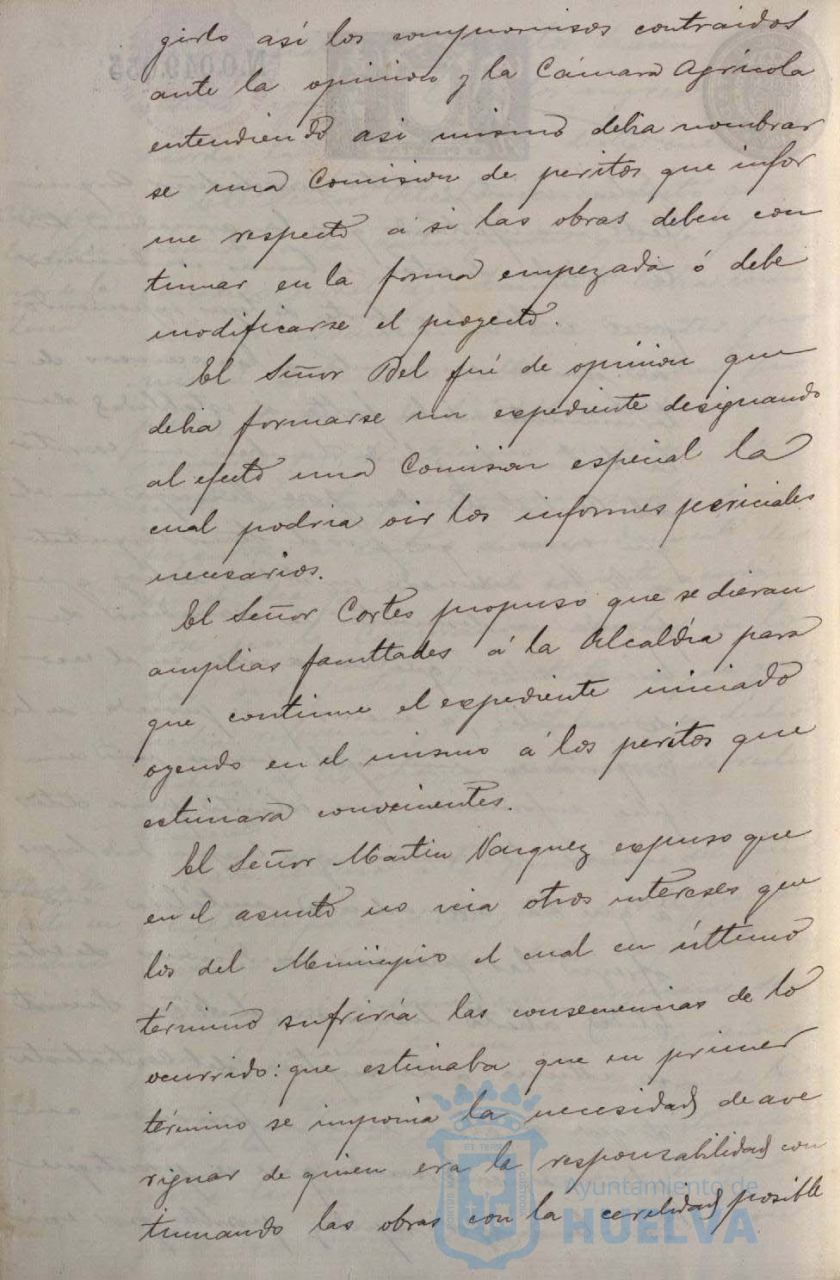 girlo así los compromisos contraidos
ante la opinion y la Cámara Agrícola
entendiendo asi mismo debia nombrar
se una Comision de peritos que infor
me respecto á si las obras deben con
tinuar en la forma empezada ó debe
modificarse el proyecto.
El Señor Bel fué de opinion que
debia formarse un expediente designando
al efecto una Comision especial la
cual podria oir los informes periciales
necesarios.
El Señor Cortes propuso que se dieran
amplias facultades á la Alcaldía para
que continue el expediente iniciado
oyendo en el mismo á los peritos que
estimara convenientes.
El Señor Martin Vazquez expuso que
en el asunto no veia otros intereses que
los del Municipio el cual en último
término sufriría las consecuencias de lo
ocurrido: que estimaba que en primer
término se imponia la necesidad de ave
riguar de quien era la responsabilidad con
tinuando las obras con la celeridad posible
Ayuntamiento de
HUELVA